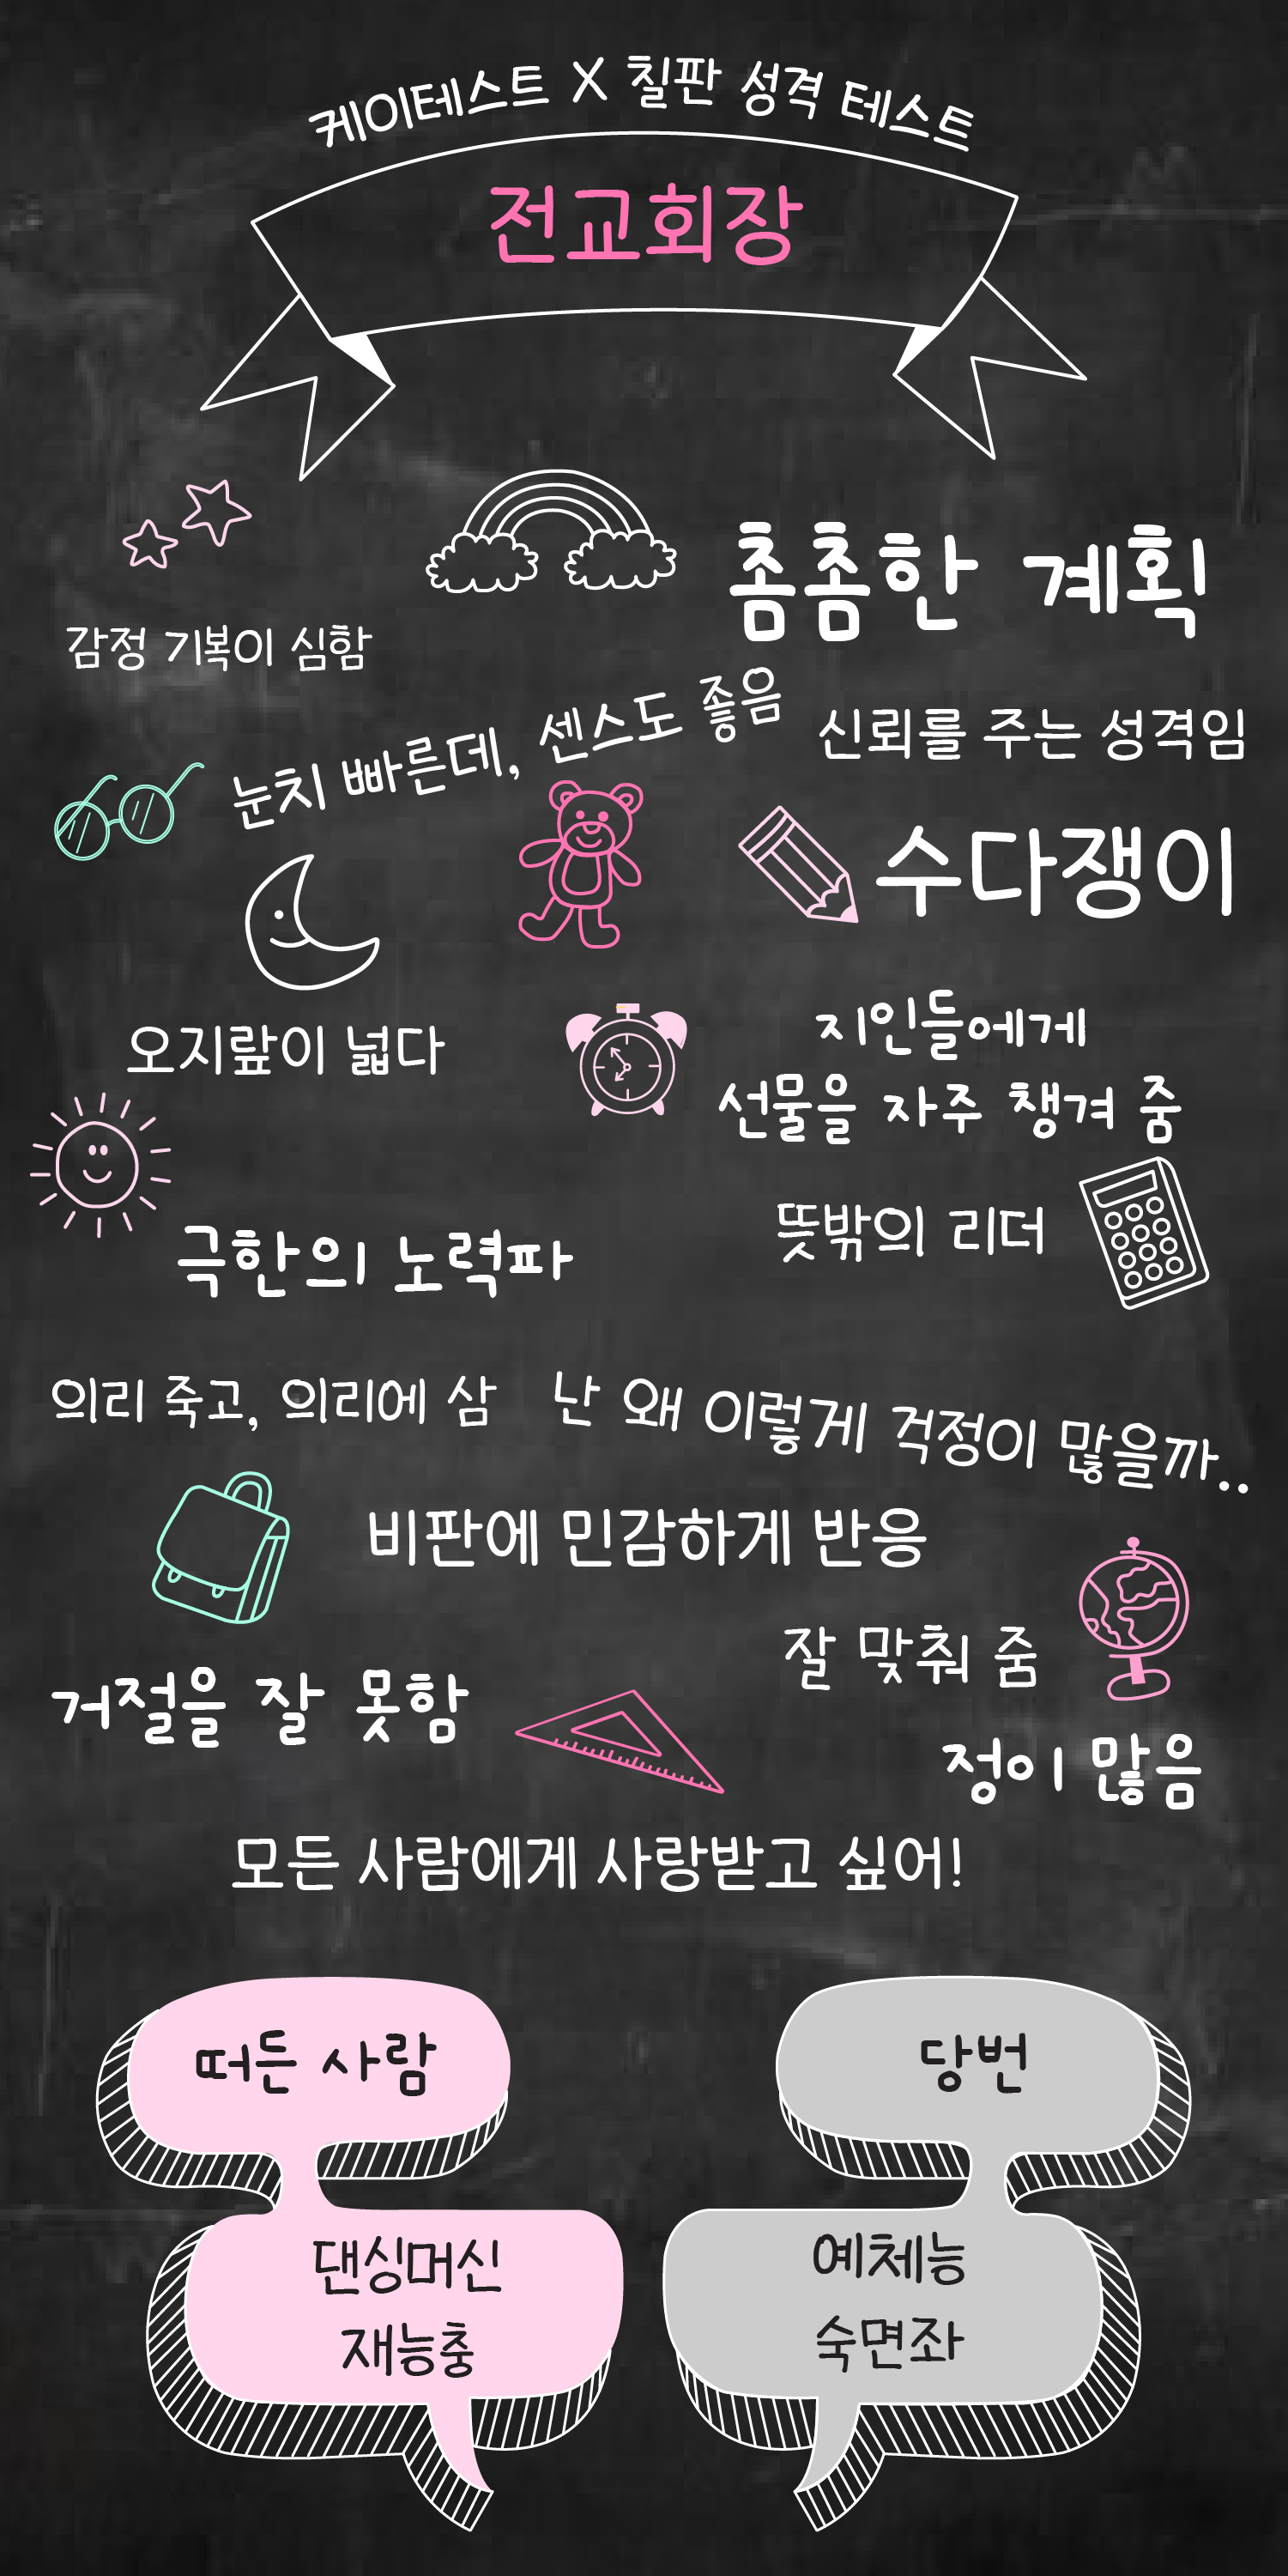 케이테스트 X 칠판 성격 테스트
전교회장
촘촘한 계획
감정 기복이 심함
눈치 빠른데, 센스도 좋음
신뢰를 주는 성격임
수다쟁이
오지랖이 넓다
지인들에게
선물을 자주 챙겨 줌
뜻밖의 리더
극한의 노력파
의리 죽고, 의리에 삼
난 왜 이렇게 걱정이 많을까..
비판에 민감하게 반응
잘 맞춰 줌
거절을 잘 못함
정이 많음
모든 사람에게 사랑받고 싶어!
떠든 사람
댄싱머신
재능충
당번
예체능
숙면좌